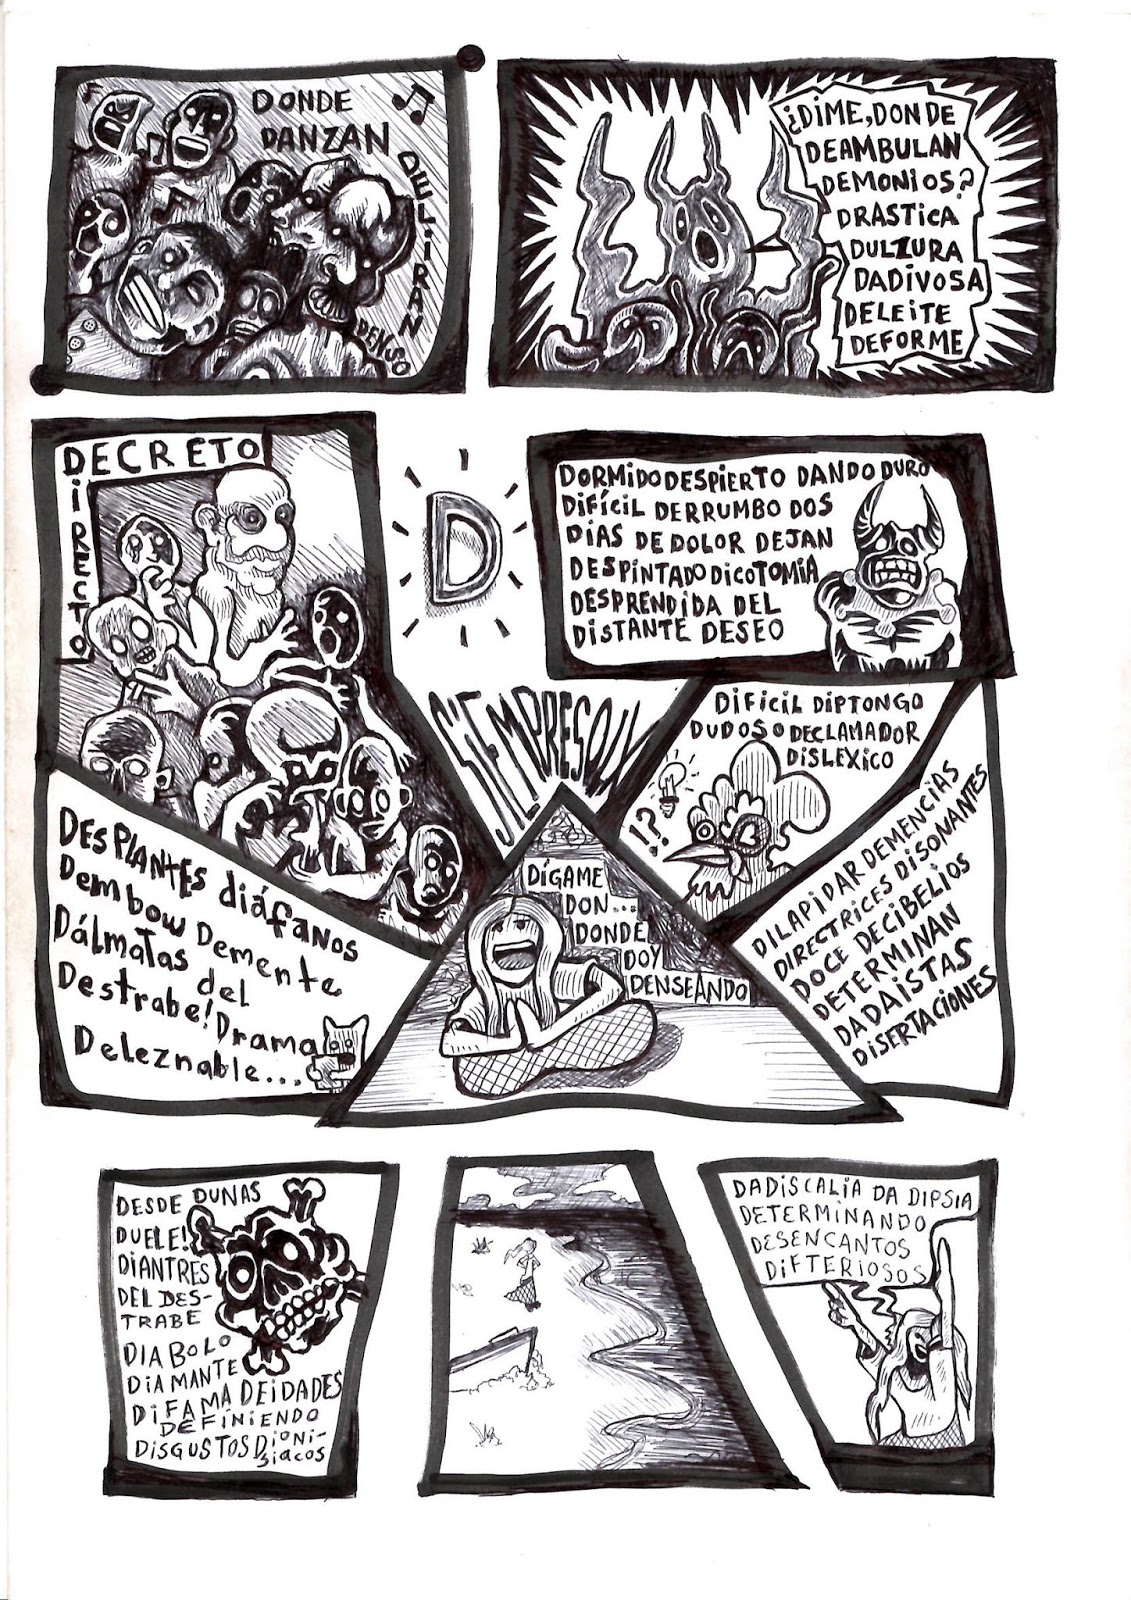 DONDE
DANZAN
DELIRAN
DENSO
¿DIME, DONDE
DEAMBULAN
DEMONIOS?
DRASTICA
DULZURA
DADIVOSA
DELEITE
DEFORME
DECRETO
DIRECTO
D
DORMIDO DESPIERTO DANDO DURO
DIFÍCIL DERRUMBO DOS
DÍAS DE DOLOR DEJAN
DESPINTADO DICOTOMIA
DESPRENDIDA DEL
DISTANTE DESEO
DIFICIL DIPTONGO
DUDOSO DECLAMADOR
DISLEXICO
!?
DESPLANTES diáfanos
Dembow Demente
Dálmatas del
Destrabe! Drama
Deleznable...
DÍGAME
DON...
DONDE
DOY
DENSEANDO
DILAPIDAR DEMENCIAS
DIRECTRICES DISONANTES
DOCE DECIBELIOS
DETERMINAN
DADAÍSTAS
DISERTACIONES
DESDE DUNAS
DUELE!
DIANTRES
DEL DES-
TRABE
DIABOLO
DIAMANTE
DIFAMA DEIDADES
DEFINIENDO
DISGUSTOS DIONI-
SIACOS
DADISCALIA DA DIPSIA
DETERMINANDO
DESENCANTOS
DIFTERIOSOS